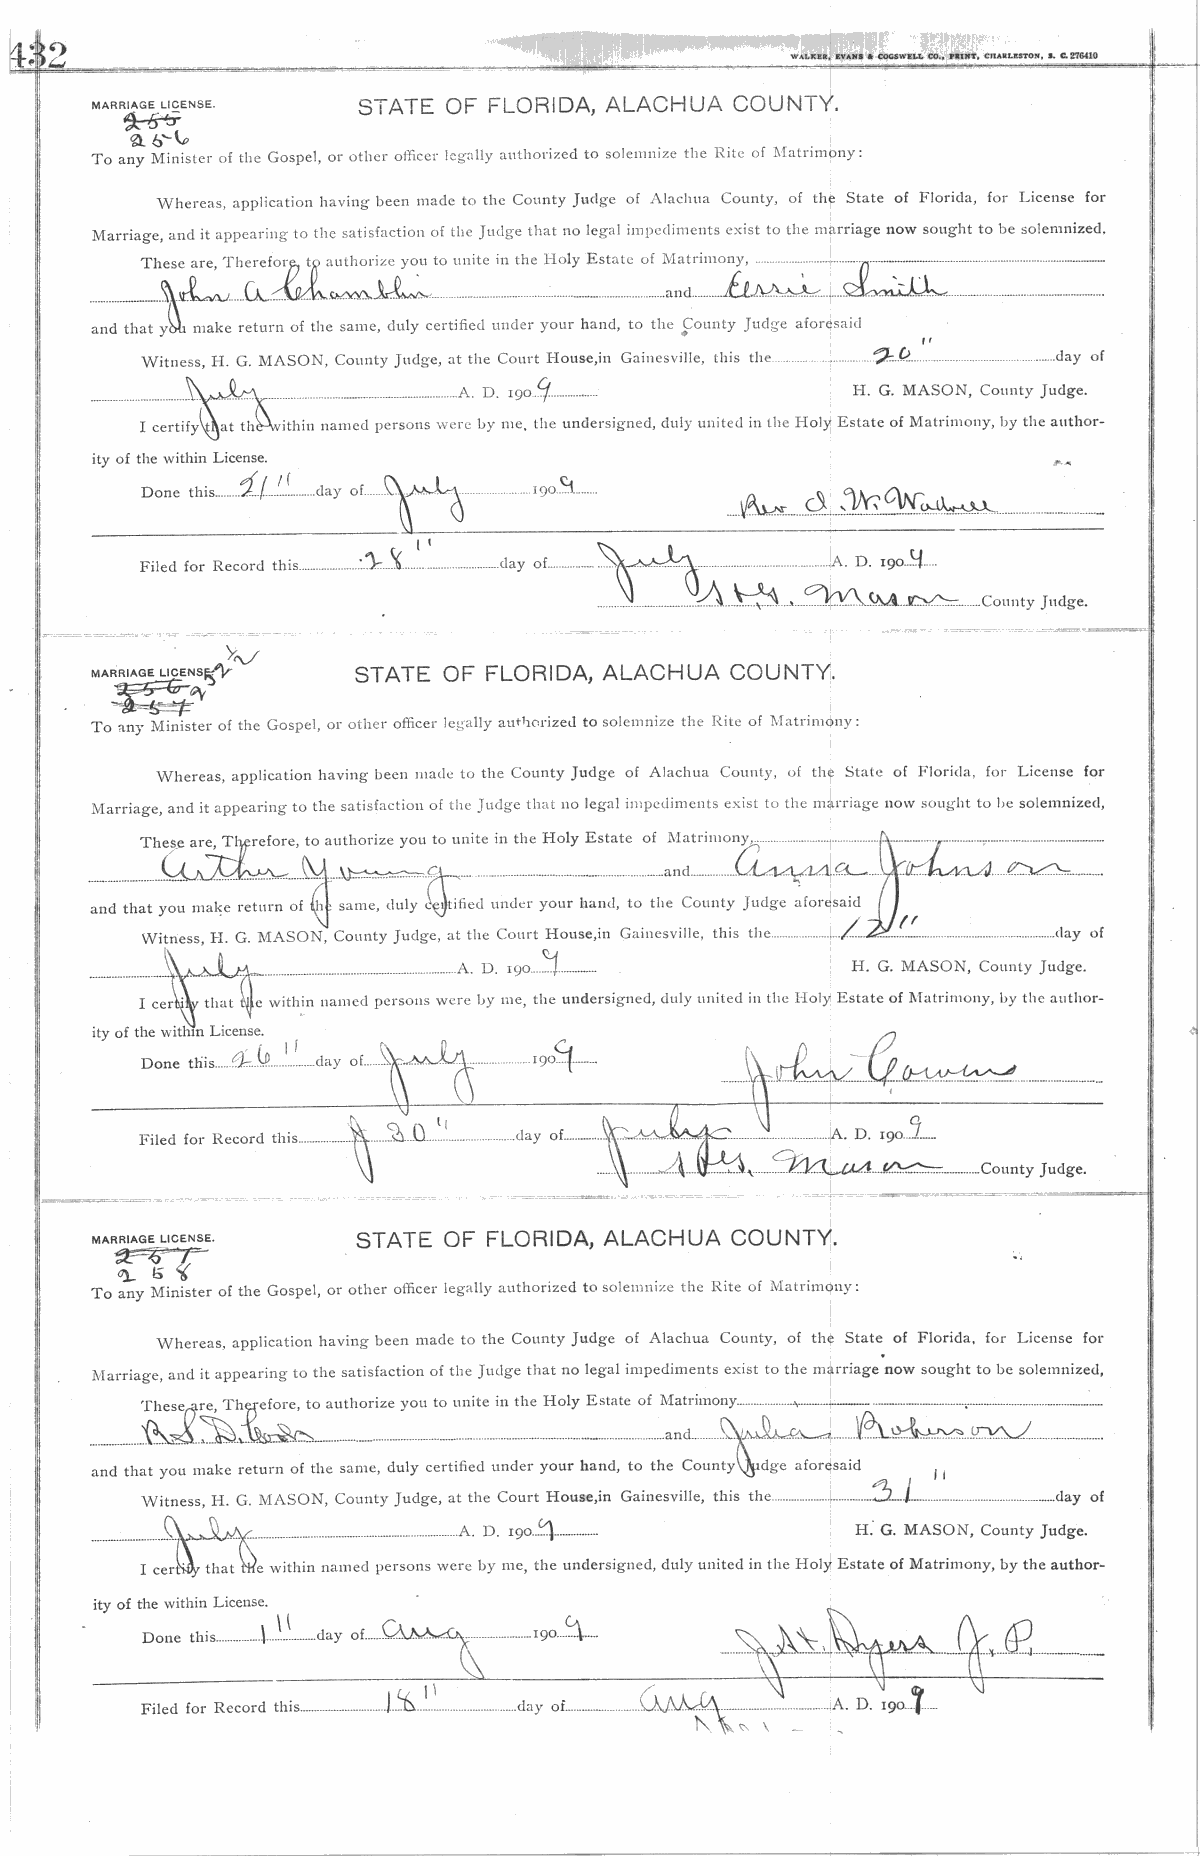 432
WALKER, EVANS & COGSWELL CO., PRINT, CHARLESTON, S. C. 276410
MARRIAGE LICENSE. STATE OF FLORIDA, ALACHUA COUNTY.
255
256
To any Minister of the Gospel, or other officer legally authorized to solemnize the Rite of Matrimony:
Whereas, application having been made to the County Judge of Alachua County, of the State of Florida, for License for
Marriage, and it appearing to the satisfaction of the Judge that no legal impediments exist to the marriage now sought to be solemnized.
These are, Therefore, to authorize you to unite in the Holy Estate of Matrimony,
John A Chamblin and Essie Smith
and that you make return of the same, duly certified under your hand, to the County Judge aforesaid
Witness, H. G. MASON, County Judge, at the Court House, in Gainesville, this the 20" day of
July A. D. 1909 H. G. MASON, County Judge.
I certify that the within named persons were by me, the undersigned, duly united in the Holy Estate of Matrimony, by the author-
ity of the within License.
Done this 21" day of July 1909
Rev W.
Filed for Record this 28" day of July A. D. 1909
H.G. Mason County Judge.
MARRIAGE LICENSE STATE OF FLORIDA, ALACHUA COUNTY.
256
257
To any Minister of the Gospel, or other officer legally authorized to solemnize the Rite of Matrimony:
Whereas, application having been made to the County Judge of Alachua County, of the State of Florida, for License for
Marriage, and it appearing to the satisfaction of the Judge that no legal impediments exist to the marriage now sought to be solemnized,
These are, Therefore, to authorize you to unite in the Holy Estate of Matrimony,
Arthur Young and Anna Johnson
and that you make return of the same, duly certified under your hand, to the County Judge aforesaid
Witness, H. G. MASON, County Judge, at the Court House, in Gainesville, this the 12" day of
July A. D. 1909 H. G. MASON, County Judge.
I certify that the within named persons were by me, the undersigned, duly united in the Holy Estate of Matrimony, by the author-
ity of the within License.
Done this 26" day of July 1909 John Cowens
Filed for Record this 30" day of July A. D. 1909
H.G. Mason County Judge.
MARRIAGE LICENSE. STATE OF FLORIDA, ALACHUA COUNTY.
257
258
To any Minister of the Gospel, or other officer legally authorized to solemnize the Rite of Matrimony:
Whereas, application having been made to the County Judge of Alachua County, of the State of Florida, for License for
Marriage, and it appearing to the satisfaction of the Judge that no legal impediments exist to the marriage now sought to be solemnized,
These are, Therefore, to authorize you to unite in the Holy Estate of Matrimony
R.S.D. and Julia Roberson
and that you make return of the same, duly certified under your hand, to the County Judge aforesaid
Witness, H. G. MASON, County Judge, at the Court House, in Gainesville, this the 31" day of
July A. D. 1909 H. G. MASON, County Judge.
I certify that the within named persons were by me, the undersigned, duly united in the Holy Estate of Matrimony, by the author-
ity of the within License.
Done this 1" day of Aug 1909 Dyess J. P.
Filed for Record this 18" day of Aug A. D. 1909